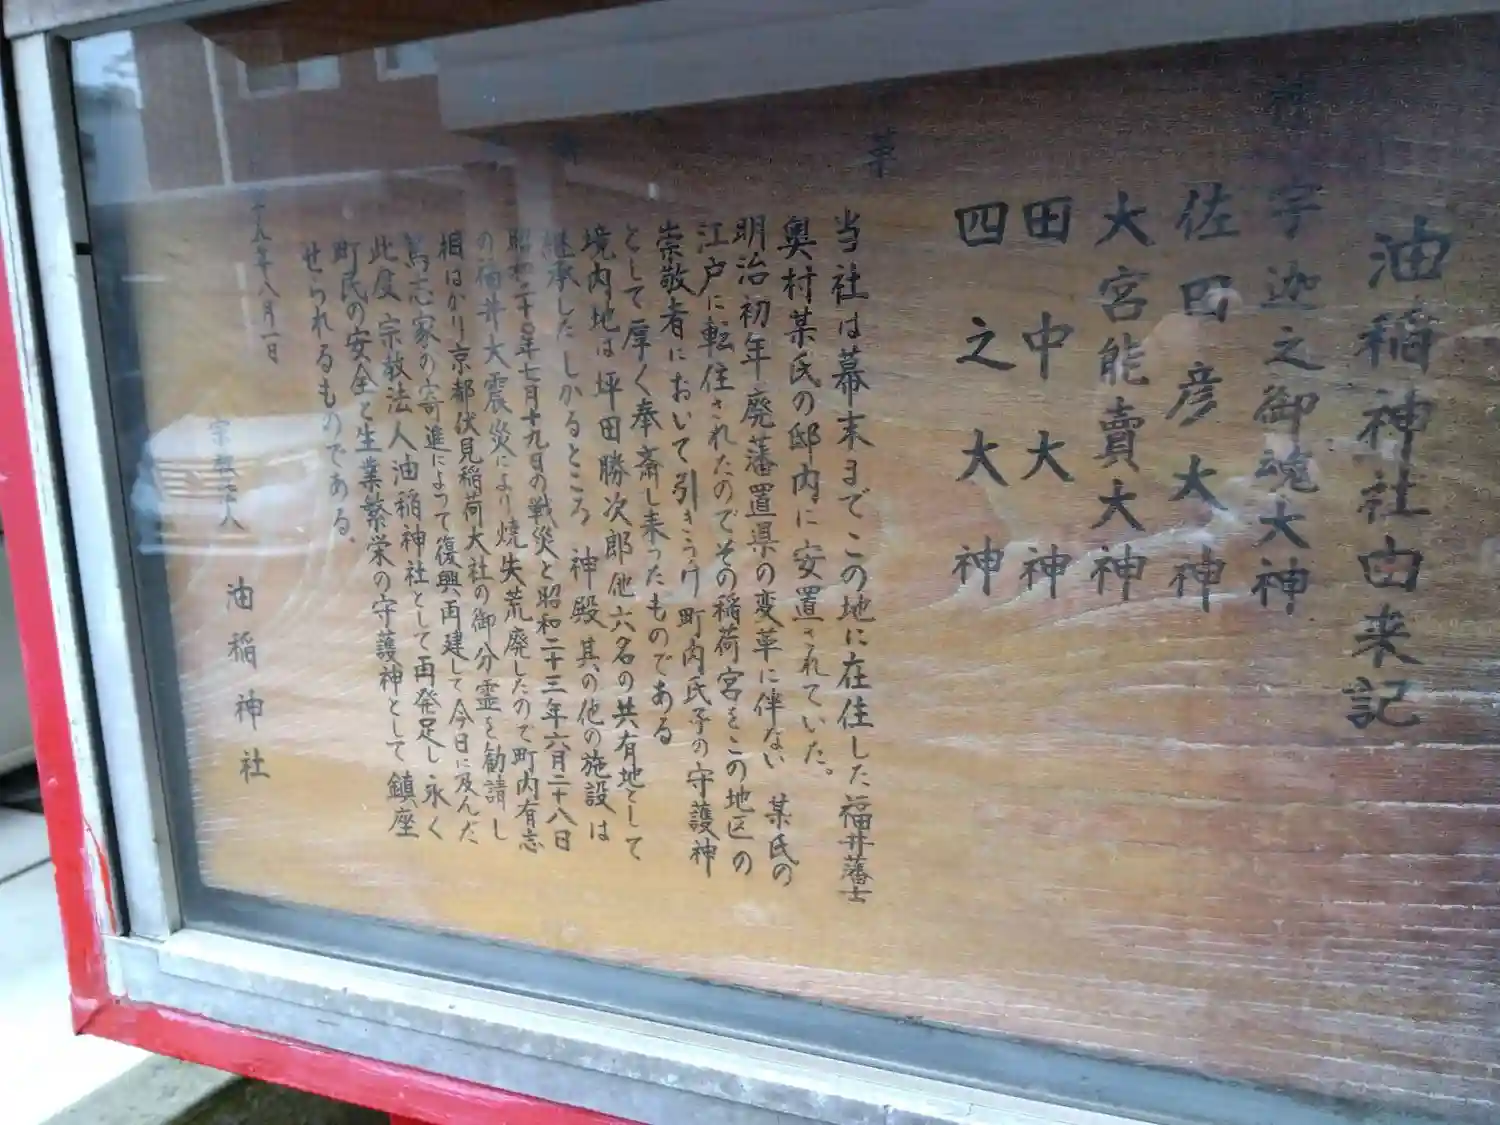 油稲神社由来記
宇迦之御魂大神
佐田彦大神
大宮能賣大神
田中大神
四之大神
当社は幕末までこの地に在住した福井藩士
奥村某氏の邸内に安置されていた。
明治初年廃藩置県の変革に伴ない 某氏の
江戸に転住されたのでその稲荷宮をこの地区の
崇敬者において引きうけ町内氏子の守護神
として厚く奉斎し来ったものである
境内地は坪田勝次郎他六名の共有地として
継承したしかるところ 神殿其の他の施設は
昭和二十年七月十九日の戦災と昭和二十三年六月二十八日
の福井大震災により焼失荒廃したので町内有志
相はかり京都伏見稲荷大社の御分霊を勧請し
篤志家の寄進によって復興再建して今日に及んだ
此度宗教法人油稲神社として再発足し永く
町民の安全と生業繁栄の守護神として鎮座
せられるものである.
十八年八月一日
宗教法人 油稲神社